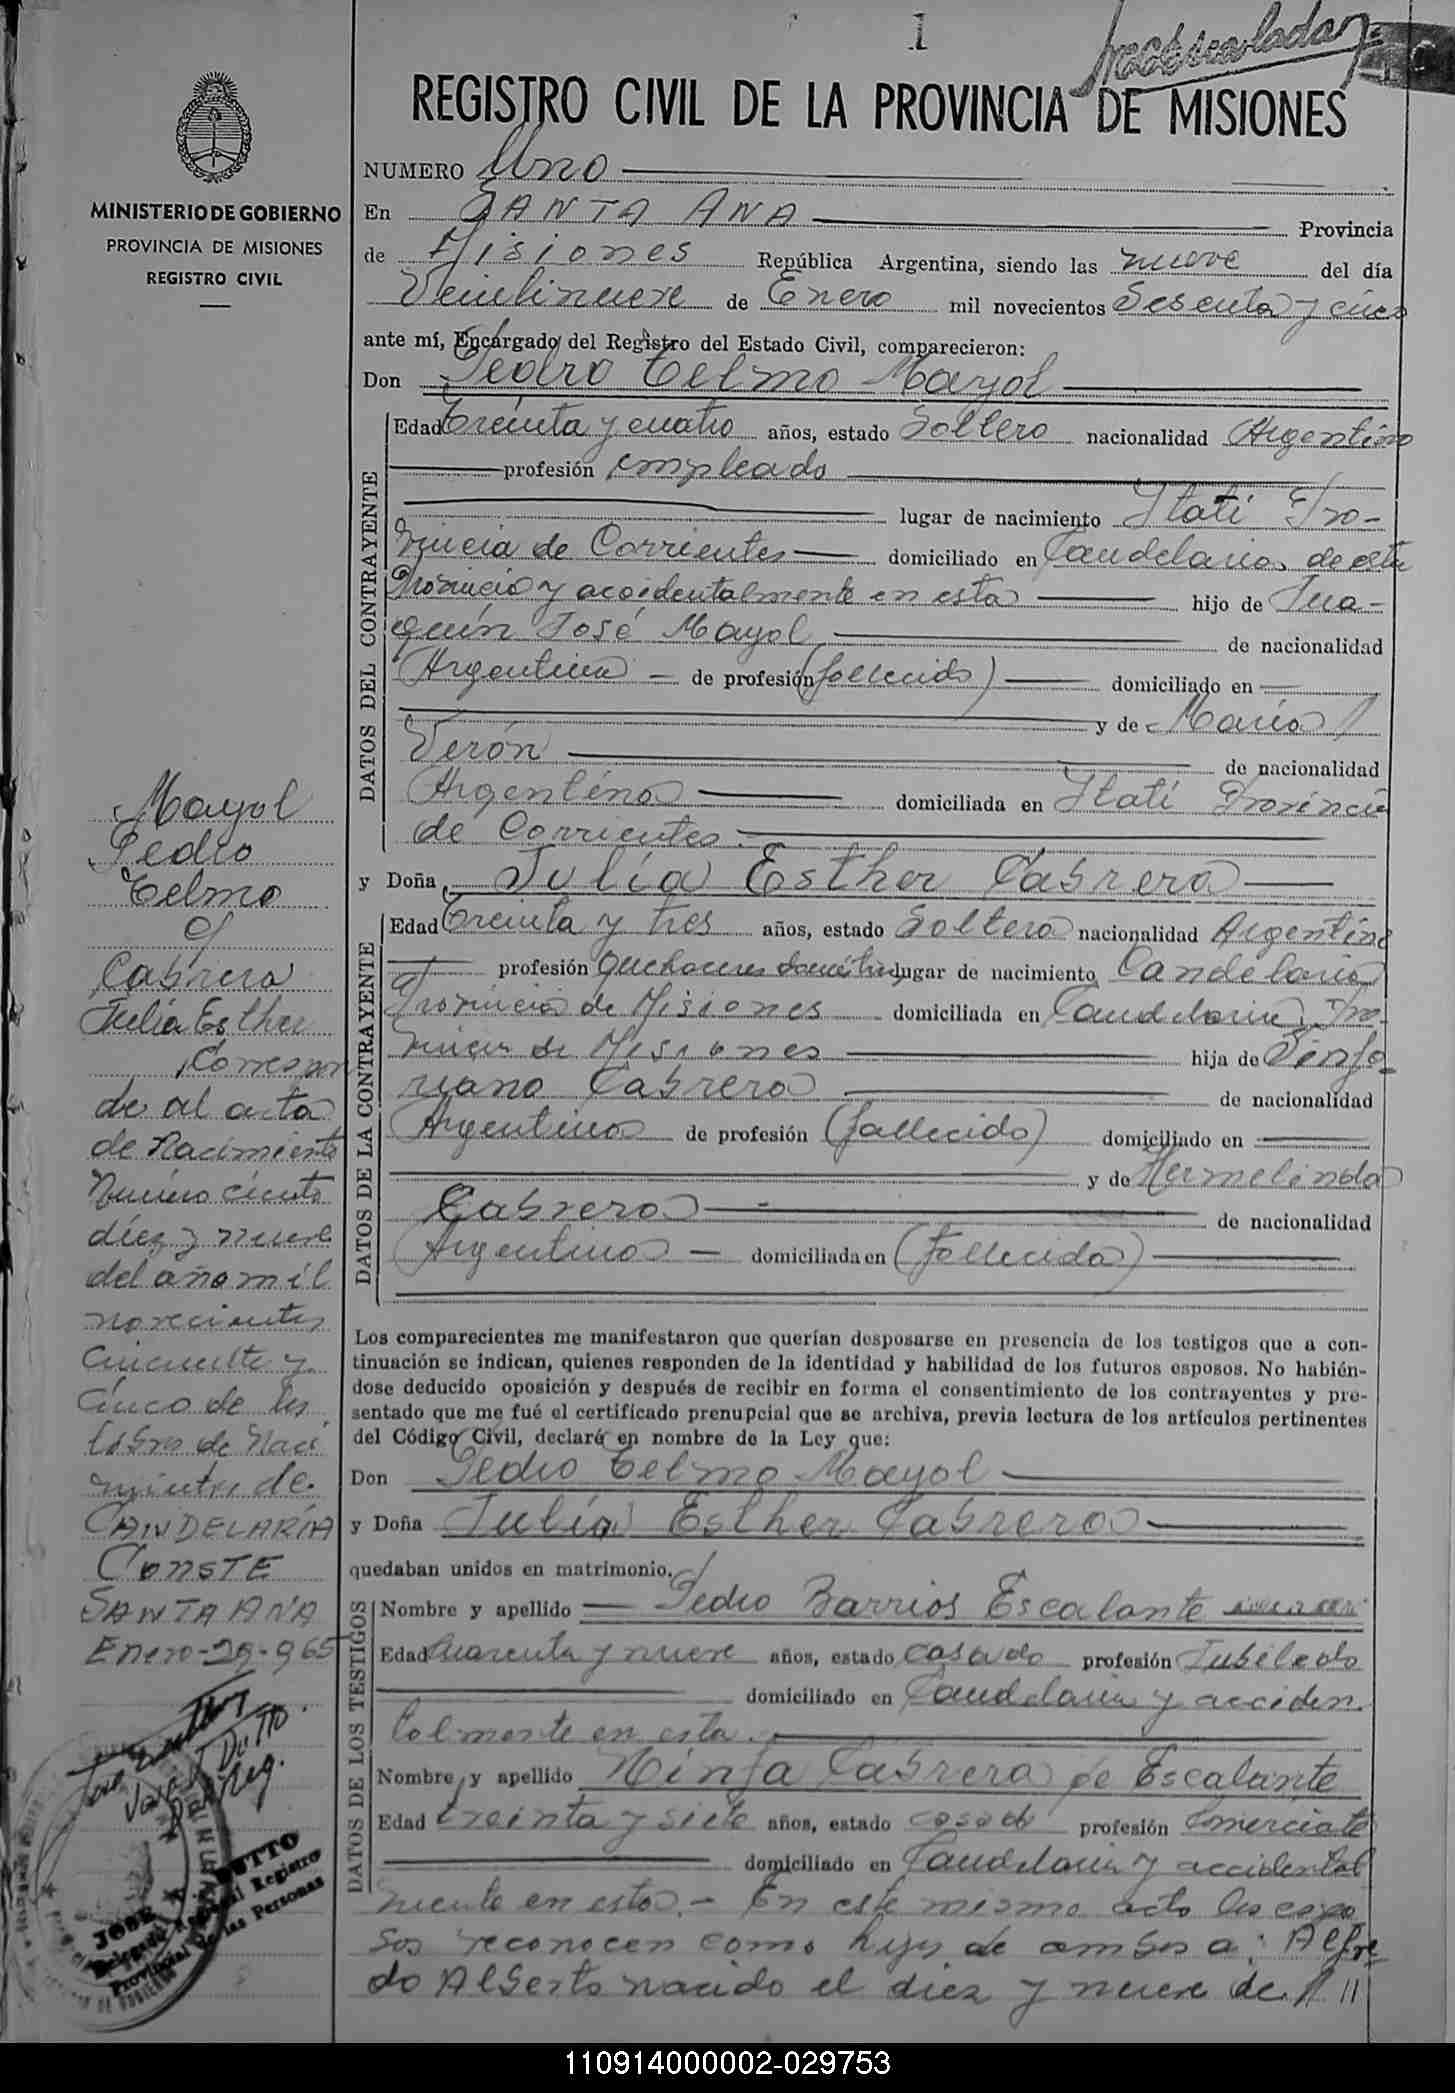 1
REGISTRO CIVIL DE LA PROVINCIA DE MISIONES
MINISTERIO DE GOBIERNO
PROVINCIA DE MISIONES
REGISTRO CIVIL
NUMERO Uno
En SANTA ANA Provincia
de Misiones República Argentina, siendo las nueve del día
Veintinueve de Enero mil novecientos Sesenta y cinco
ante mí, Encargado del Registro del Estado Civil, comparecieron:
Don Pedro Telmo Mayol
DATOS DEL CONTRAYENTE
Edad Treinta y cuatro años, estado Soltero nacionalidad Argentino
profesión empleado
lugar de nacimiento Itatí Pro-
vincia de Corrientes domiciliado en Candelaria, de esta
Provincia y accidentalmente en esta hijo de Jua-
quín José Mayol de nacionalidad
Argentina de profesión (fallecido) domiciliado en
y de María
Verón de nacionalidad
Argentina domiciliada en Itatí Provincia
de Corrientes.
y Doña Julia Esther Cabrera
DATOS DE LA CONTRAYENTE
Edad Treinta y tres años, estado Soltera nacionalidad Argentina
profesión quehaceres domésticos lugar de nacimiento Candelaria
Provincia de Misiones domiciliada en Candelaria Pro-
vincia de Misiones hija de Sinfo-
riano Cabrera de nacionalidad
Argentino de profesión (fallecido) domiciliado en
y de Hermelinda
Cabrera de nacionalidad
Argentina domiciliada en (fallecida)
Los comparecientes me manifestaron que querían desposarse en presencia de los testigos que a con-
tinuación se indican, quienes responden de la identidad y habilidad de los futuros esposos. No habién-
dose deducido oposición y después de recibir en forma el consentimiento de los contrayentes y pre-
sentado que me fué el certificado prenupcial que se archiva, previa lectura de los artículos pertinentes
del Código Civil, declaré en nombre de la Ley que:
Don Pedro Telmo Mayol
y Doña Julia Esther Cabrera
quedaban unidos en matrimonio.
DATOS DE LOS TESTIGOS
Nombre y apellido Pedro Barrios Escalante
Edad Cuarenta y nueve años, estado casado profesión Jubilado
domiciliado en Candelaria y acciden
talmente en esta.
Nombre y apellido Ninfa Cabrera de Escalante
Edad treinta y siete años, estado casada profesión Comerciante
domiciliado en Candelaria y accidental
mente en esta.- En este mismo acto los espo
sos reconocen como hijos de ambos a: Alfre-
do Alberto nacido el diez y nueve de
Mayol
Pedro
Telmo
c/
Cabrera
Julia Esther
Correspon
de al acta
de Nacimiento
Número ciento
diez y nueve
del año mil
novecientos
cincuenta y
cinco de los
libros de Naci
mientos de
CANDELARIA
CONSTE
SANTA ANA
Enero-29-965
JOSE DUTTO
Delegado Registro
Provincial de las Personas
110914000002-029753